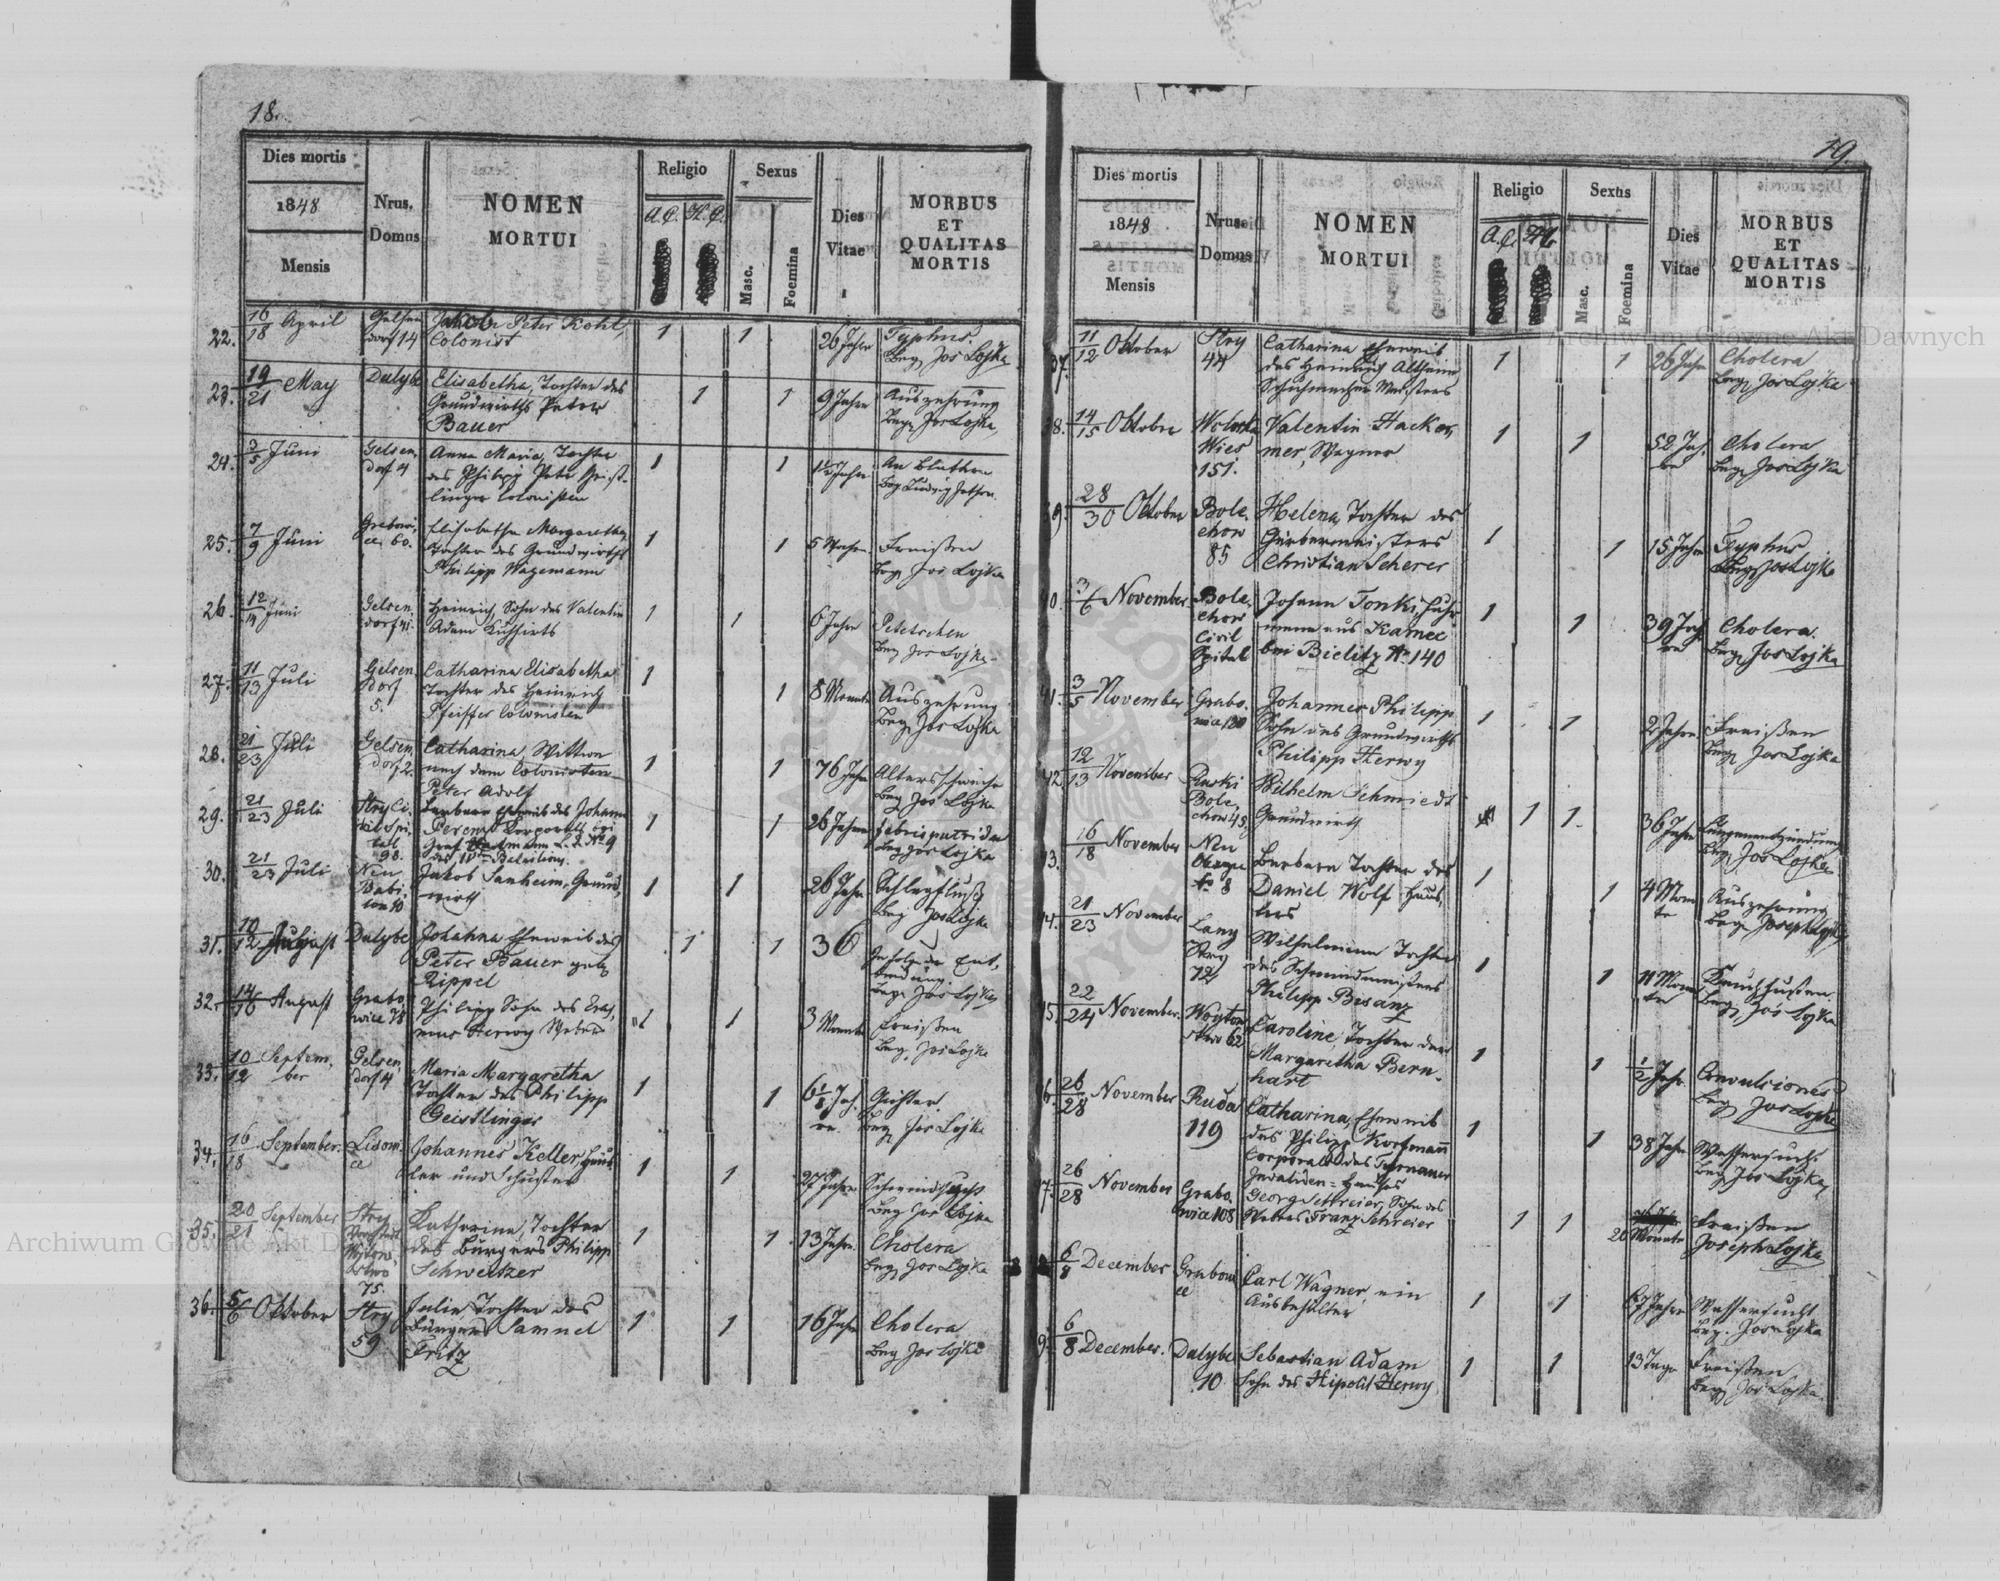 18.
Dies mortis
1848
Mensis
Nrus. Domus
NOMEN
MORTUI
Religio
A.C. H.C.
Sexus
Masc.
Foemina
Dies
Vitae
MORBUS
ET
QUALITAS
MORTIS
22. 16/18 April
Gelsen
dorf 14
Jakob Peter Kohl,
Colonist
1 1
26 Jahre
Typhus.
Beg Jos Lojka
23. 19/21 May
Dalybe
Elisabetha, Tochter des
Grundwirths Peter
Bauer
1 1
9 Jahre
Auszehrung
Beg. Jos Lojka
24. 3/5 Juni
Gelsen
dorf 4
Anna Maria, Tochter
des Philipp Peter Geist-
linger Colonisten
1 1
1½ Jahre
An Blattern
25. 7/9 Juni
Grabowi
ce 60.
Elisabetha Margaretha
Tochter des Grundwirths
Philipp Wagemann
1 1
5 Wochen
Fraißen
Beg Jos Lojka
26. 12/14 Juni
Gelsen
dorf 41.
Heinrich, Sohn des Valentin
Adam
1 1
6 Jahre
Petetschen
Beg Jos Lojka
27. 11/13 Juli
Gelsen
dorf
5.
Catharina Elisabetha
Tochter des Heinrich
Pfeiffer Colonisten
1 1
8 Monate
Auszehrung
Beg. Jos Lojka
28. 21/23 Juli
Gelsen
dorf 2.
Catharina, Wittwe
nach dem Colonisten
Peter Adolf
1 1
76 Jahre
Altersschwäche
Beg Jos Lojka
29. 21/23 Juli
Stry Ci
vil Spi
tal
98.
Barbara Eheweib des Johann
Corporals bei
Graf Hartmann
des Bataillons
1 1
26 Jahre
febris putrida
Beg Jos Lojka
30. 21/23 Juli
Neu
Babi
lon 10
Jakob Sanheim, Grund
wirth
1 1
26 Jahre
Schlagfluß
Beg Jos Lojka
31. 10/12 August
Dalybe
Johanna Eheweib des
Peter Bauer geb.
Rippel
1 1
36
In folge der Ent,
bindung
Beg. Jos Lojka
32. 14/16 August
Grabo
wice 78
Philipp Sohn des
Herwy Weber
1 1
3 Monate
Fraißen
Beg. Jos Lojka
33. 10/12 Septem
ber
Gelsen
dorf 4
Maria Margaretha
Tochter des Philipp
Geistlinger
1 1
6⅛ Jah
re.
Gichter
Beg Jos Lojka
34. 16/18 September
Lisowi
ce
Johannes Keller, Häus
ler und Schuster
1 1
27 Jahre
Schwindsucht
Beg Jos Lojka
35. 20/21 September
Stry
Vorstadt
75.
Katharina, Tochter
des Bürgers Philipp
Schweitzer
1 1
13 Jahre
Cholera
Beg Jos Lojka
36. 5/6 Oktober
Stry
59
Julie Tochter des
Bürgers Samuel
Fritz
1 1
16 Jahre
Cholera
Beg Jos Lojka
19.
Dies mortis
1848
Mensis
Nrus. Domus
NOMEN
MORTUI
Religio
A.C. H.C.
Sexus
Masc.
Foemina
Dies
Vitae
MORBUS
ET
QUALITAS
MORTIS
37. 11/12 Oktober
Stry
44
Catharina Eheweib
des Heinrich Altheim
Schuhmacher Meisters
1 1
26 Jahre
Cholera
Beg Jos Lojka
38. 14/15 Oktober
Wies
151.
Valentin Hackem,
mer, Wagner
1 1
52 Jah,
re
Cholera
Beg Jos Lojka
39. 28/30 Oktober
Bole,
chow
85
Helena, Tochter des
Gerbermeisters
Christian Scherer
1 1
15 Jahre
Typhus
Beg Jos Lojka
40. 3/6 November
Bole,
chow
Civil
Spital
Johann Tonki, Fuhr
mann aus Kamec
bei Bielitz No 140
1 1
39 Jah
re
Cholera.
Beg. Jos Lojka
41. 3/5 November
Grabo.
wice 120
Johannes Philipp
Sohn des Grundwirths
Philipp Herwy
1 1
2 Jahre
Fraißen
Beg. Jos Lojka
42. 12/13 November
Ruski
Bole,
chow 45
Wilhelm Schmiedt
Grundwirth
1 1
36 Jahre
Lungenentzündung
Beg. Jos Lojka
43. 16/18 November
Neu
8
Barbara Tochter des
Daniel Wolf Häus,
lers
1 1
4 Mona
te
Auszehrung
Beg. Joseph Lojka
44. 21/23 November
Lany
Stry
72
Wilhelmina Tochter
des Schmiedemeisters
Philipp Besanz
1 1
11 Mona
te
Keuchhusten
Beg. Jos Lojka
45. 22/24 November.
62
Caroline, Tochter der
Margaretha Bern-
hart
1 1
½ Jahr
Convulsiones
Beg Jos Lojka
46. 26/28 November
Ruda
119
Catharina, Eheweib
des Philipp Korfmann
Corporals des Tyrnauer
Invaliden=Hauses
1 1
38 Jahre
Wassersucht
Beg. Jos Lojka
47. 26/28 November
Grabo,
wice 108
Georg Schreier, Sohn des
Webers Franz Schreier
1 1
20 Monate
Fraißen
Joseph Lojka
48. 6/8 December
Grabowi
ce
Carl Wagner, ein
Ausbehälter
1 1
67 Jahre
Wassersucht
Beg. Jos Lojka
49. 6/8 December.
Dalybe
10
Sebastian Adam
Sohn des Hipolit Herwy
1 1
13 Tage
Fraißen
Beg Jos Lojka
Archiwum Główne Akt Dawnych
Archiwum Główne Akt Dawnych